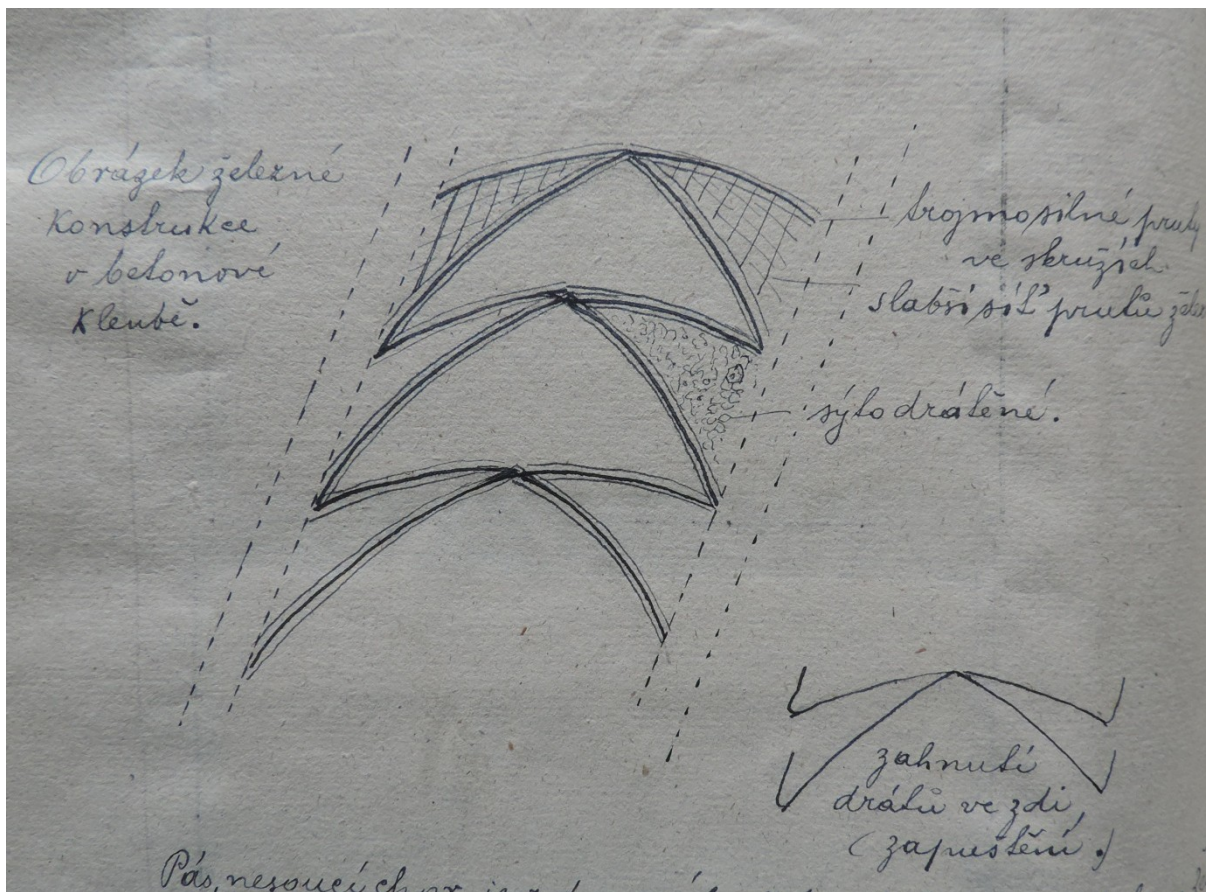 Obrázek železné
konstrukce
v betonové
klenbě.
trojmo silné pruty
ve skružích
slabší síť prutů
sýto drátěné.
zahnutí
drátů ve zdi,
(zapuštění.)
Pás, nesoucí chor, je